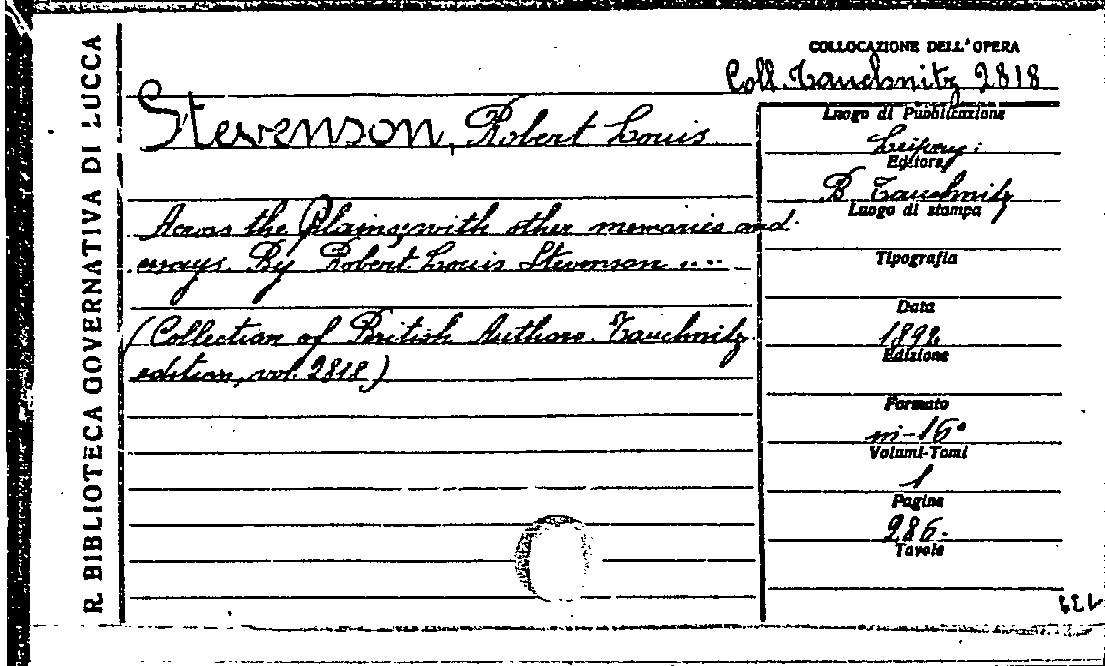 R. BIBLIOTECA GOVERNATIVA DI LUCCA
COLLOCAZIONE DELL'OPERA
Coll. Tauchnitz 2818
Stevenson, Robert Louis
Across the Plains; with other memories and
essays. By Robert Louis Stevenson ....
(Collection of British Authors. Tauchnitz
edition, vol. 2818)
Luogo di Pubblicazione
Leipzig:
Editore
B. Tauchnitz
Luogo di stampa
Tipografia
Data
1892
Edizione
Formato
in-16°
Volumi-Tomi
1
Pagine
286.
Tavole